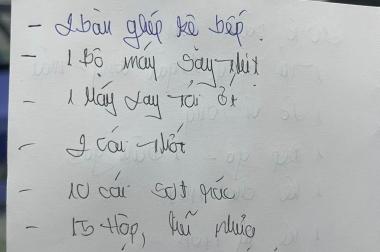 - 2 bàn ghép kê bếp.
- 1 Bộ máy say thịt
- 1 Máy xay tỏi ớt
- 2 cái thớt
- 10 cái sọt rác
- 15 Hộp, hũ nhựa